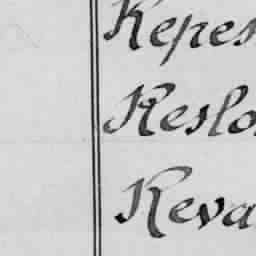 Kepes
Keslo
Keva